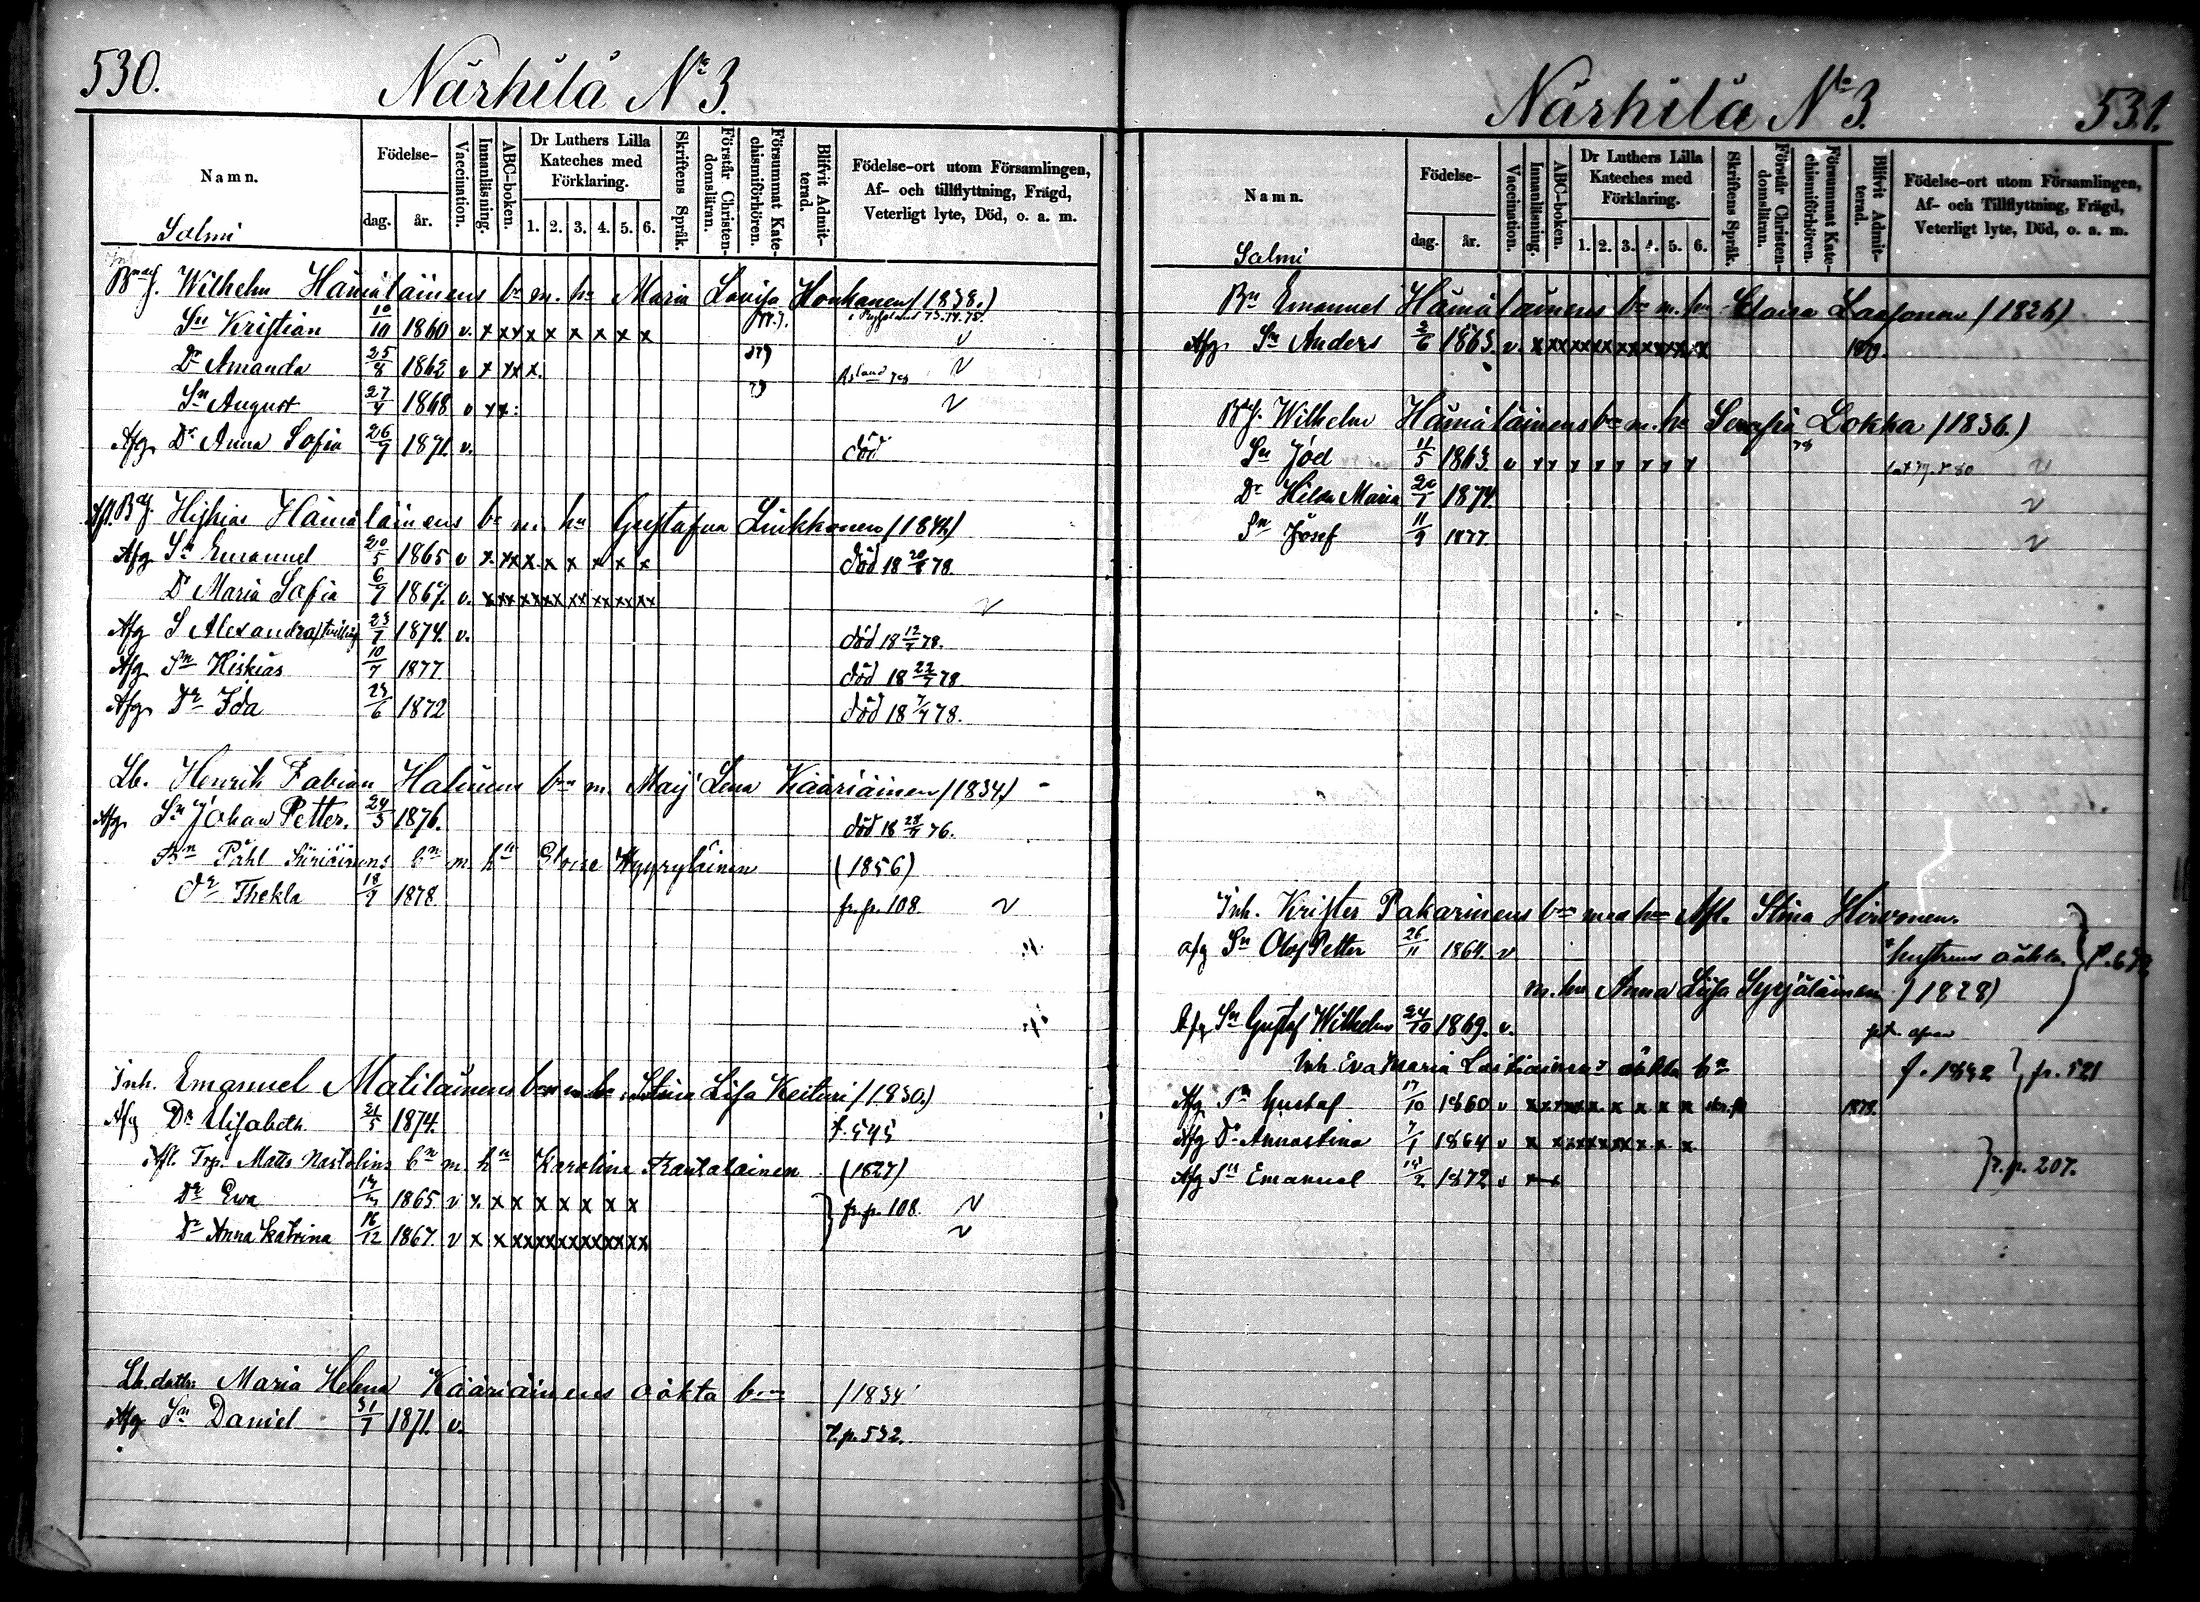 530.
Närhilä No 3.
Namn.
Födelse-
dag.
år.
Vaccination.
Innanläsning.
ABC-boken.
Dr Luthers Lilla Kateches med Förklaring.
1. 2. 3. 4. 5. 6.
Skriftens Språk.
Förstår Christen-domsläran.
Försummat Kate-chismiförhören.
Blifvit Admit-terad.
Födelse-ort utom Församlingen, Af- och tillflyttning, Frägd, Veterligt lyte, Död, o. a. m.
Salmi
Wilhelm Hämäläinens bn m. hu Maria Lovisa Honkanen (1838.)
Sn Kristian 10/10 1860 v. x x x x x x x x x
Dr Amanda 25/8 1862 v x x x x
Sn August 27/4 1868 v x x
Afg. Dr Anna Sofia 26/9 1871 v. död
Hiskias Hämäläinens bn m. hu Gustafva Linkkonen (1842)
Afg Sn Emanuel 20/5 1865 v x x x x x x x x x död 18 20/8 78.
Dr Maria Sofia 6/9 1867. v. x x x x x x x x x
Afg S Alexandra 23/7 1874. v. död 18 12/7 78.
Afg Sn Hiskias 10/7 1877 död 18 22/7 78
Afg. Dr Ida 29/6 1872 död 18 7/7 78.
Lb. Henrik Fabian Halinens bn m. Maij Lena Kääriäinen (1834)
Afg. Sn Johan Petter. 24/5 1876. död 18 28/7 76.
Påhl bn m. hu (1856)
Dr Thekla 18/9 1878. fr. p. 108.
Inh. Emanuel Matiläinens bn m. hu Stina Lisa Keituri (1830.)
Afg Dr Elisabeth 21/5 1874.
Matts bn m. hu Karoline Rautalainen (1827)
Dr Ewa 1865 v x x x x x x x x fr. p. 108
Dr Anna Katrina 16/12 1867. v x x x x x x x x x
Maria Helena Kääriäinens oäkta bn (1834
Afg Sn Daniel 31/7 1871. v. T. p. 532.
Närhilä No 3.
531.
Namn.
Födelse-
dag.
år.
Vaccination.
Innanläsning.
ABC-boken.
Dr Luthers Lilla Kateches med Förklaring.
1. 2. 3. 4. 5. 6.
Skriftens Språk.
Förstår Christen-domsläran.
Försummat Kate-chismiförhören.
Blifvit Admit-terad.
Födelse-ort utom Församlingen, Af- och Tillflyttning, Frägd, Veterligt lyte, Död, o. a. m.
Salmi
Emanuel Hämäläinens bn m. hu (1826)
Afg. Sn Anders 2/6 1863. v. x x x x x x x x x
Wilhelm Hämäläinens bn m. hu Serafia Lokka (1836.)
Sn Joel 11/5 1863 v x x x x x x x x
Dr Hilda Maria 20/1 1874.
Sn Josef 11/9 1877.
Inh. Krister Pakarinens bn med hu Afl. Stina Hirvonen.
afg Sn Olof Petter 26/11 1864. v hustruns oäkta
m. hu Anna Lisa Syrjäläinen (1828)
Afg Sn Gustaf Wilhelm 24/10 1869. v.
Inh. Eva Maria oäkta bn f. 1832 fr. 521
Afg Sn Gustaf 17/10 1860 v x x x x x x x x 1878.
Afg Dr Annastina 7/1 1864 v x x x x x x x x x
Afg Sn Emanuel 1872 v T. p. 207.